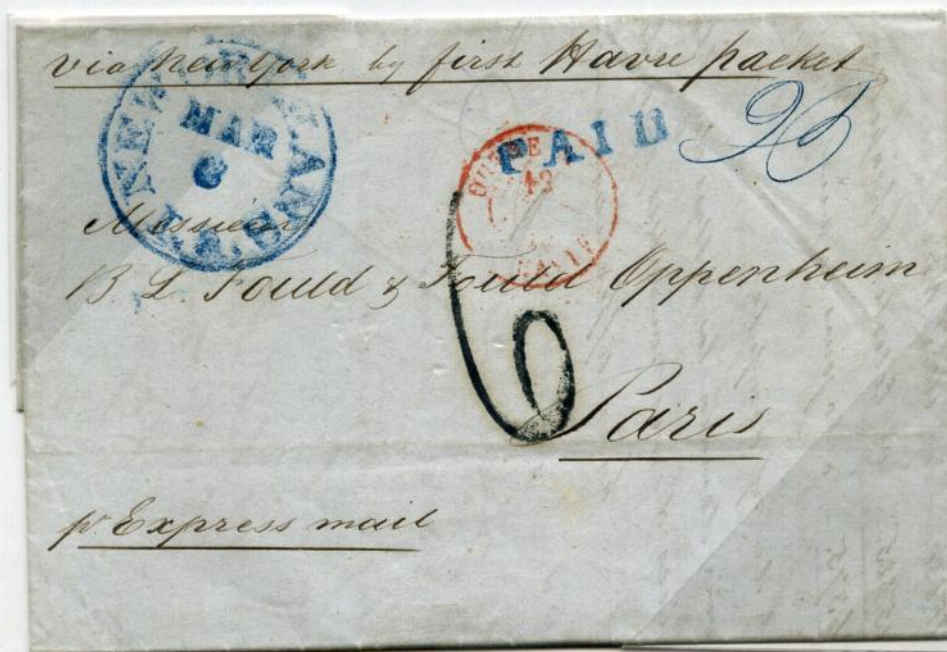 via New York by first Havre packet
NEW ORLEANS
MAR
6
PAID
OUTRE
Messieurs
B. L. Fould & Fould Oppenheim
6
Paris
pr Express mail